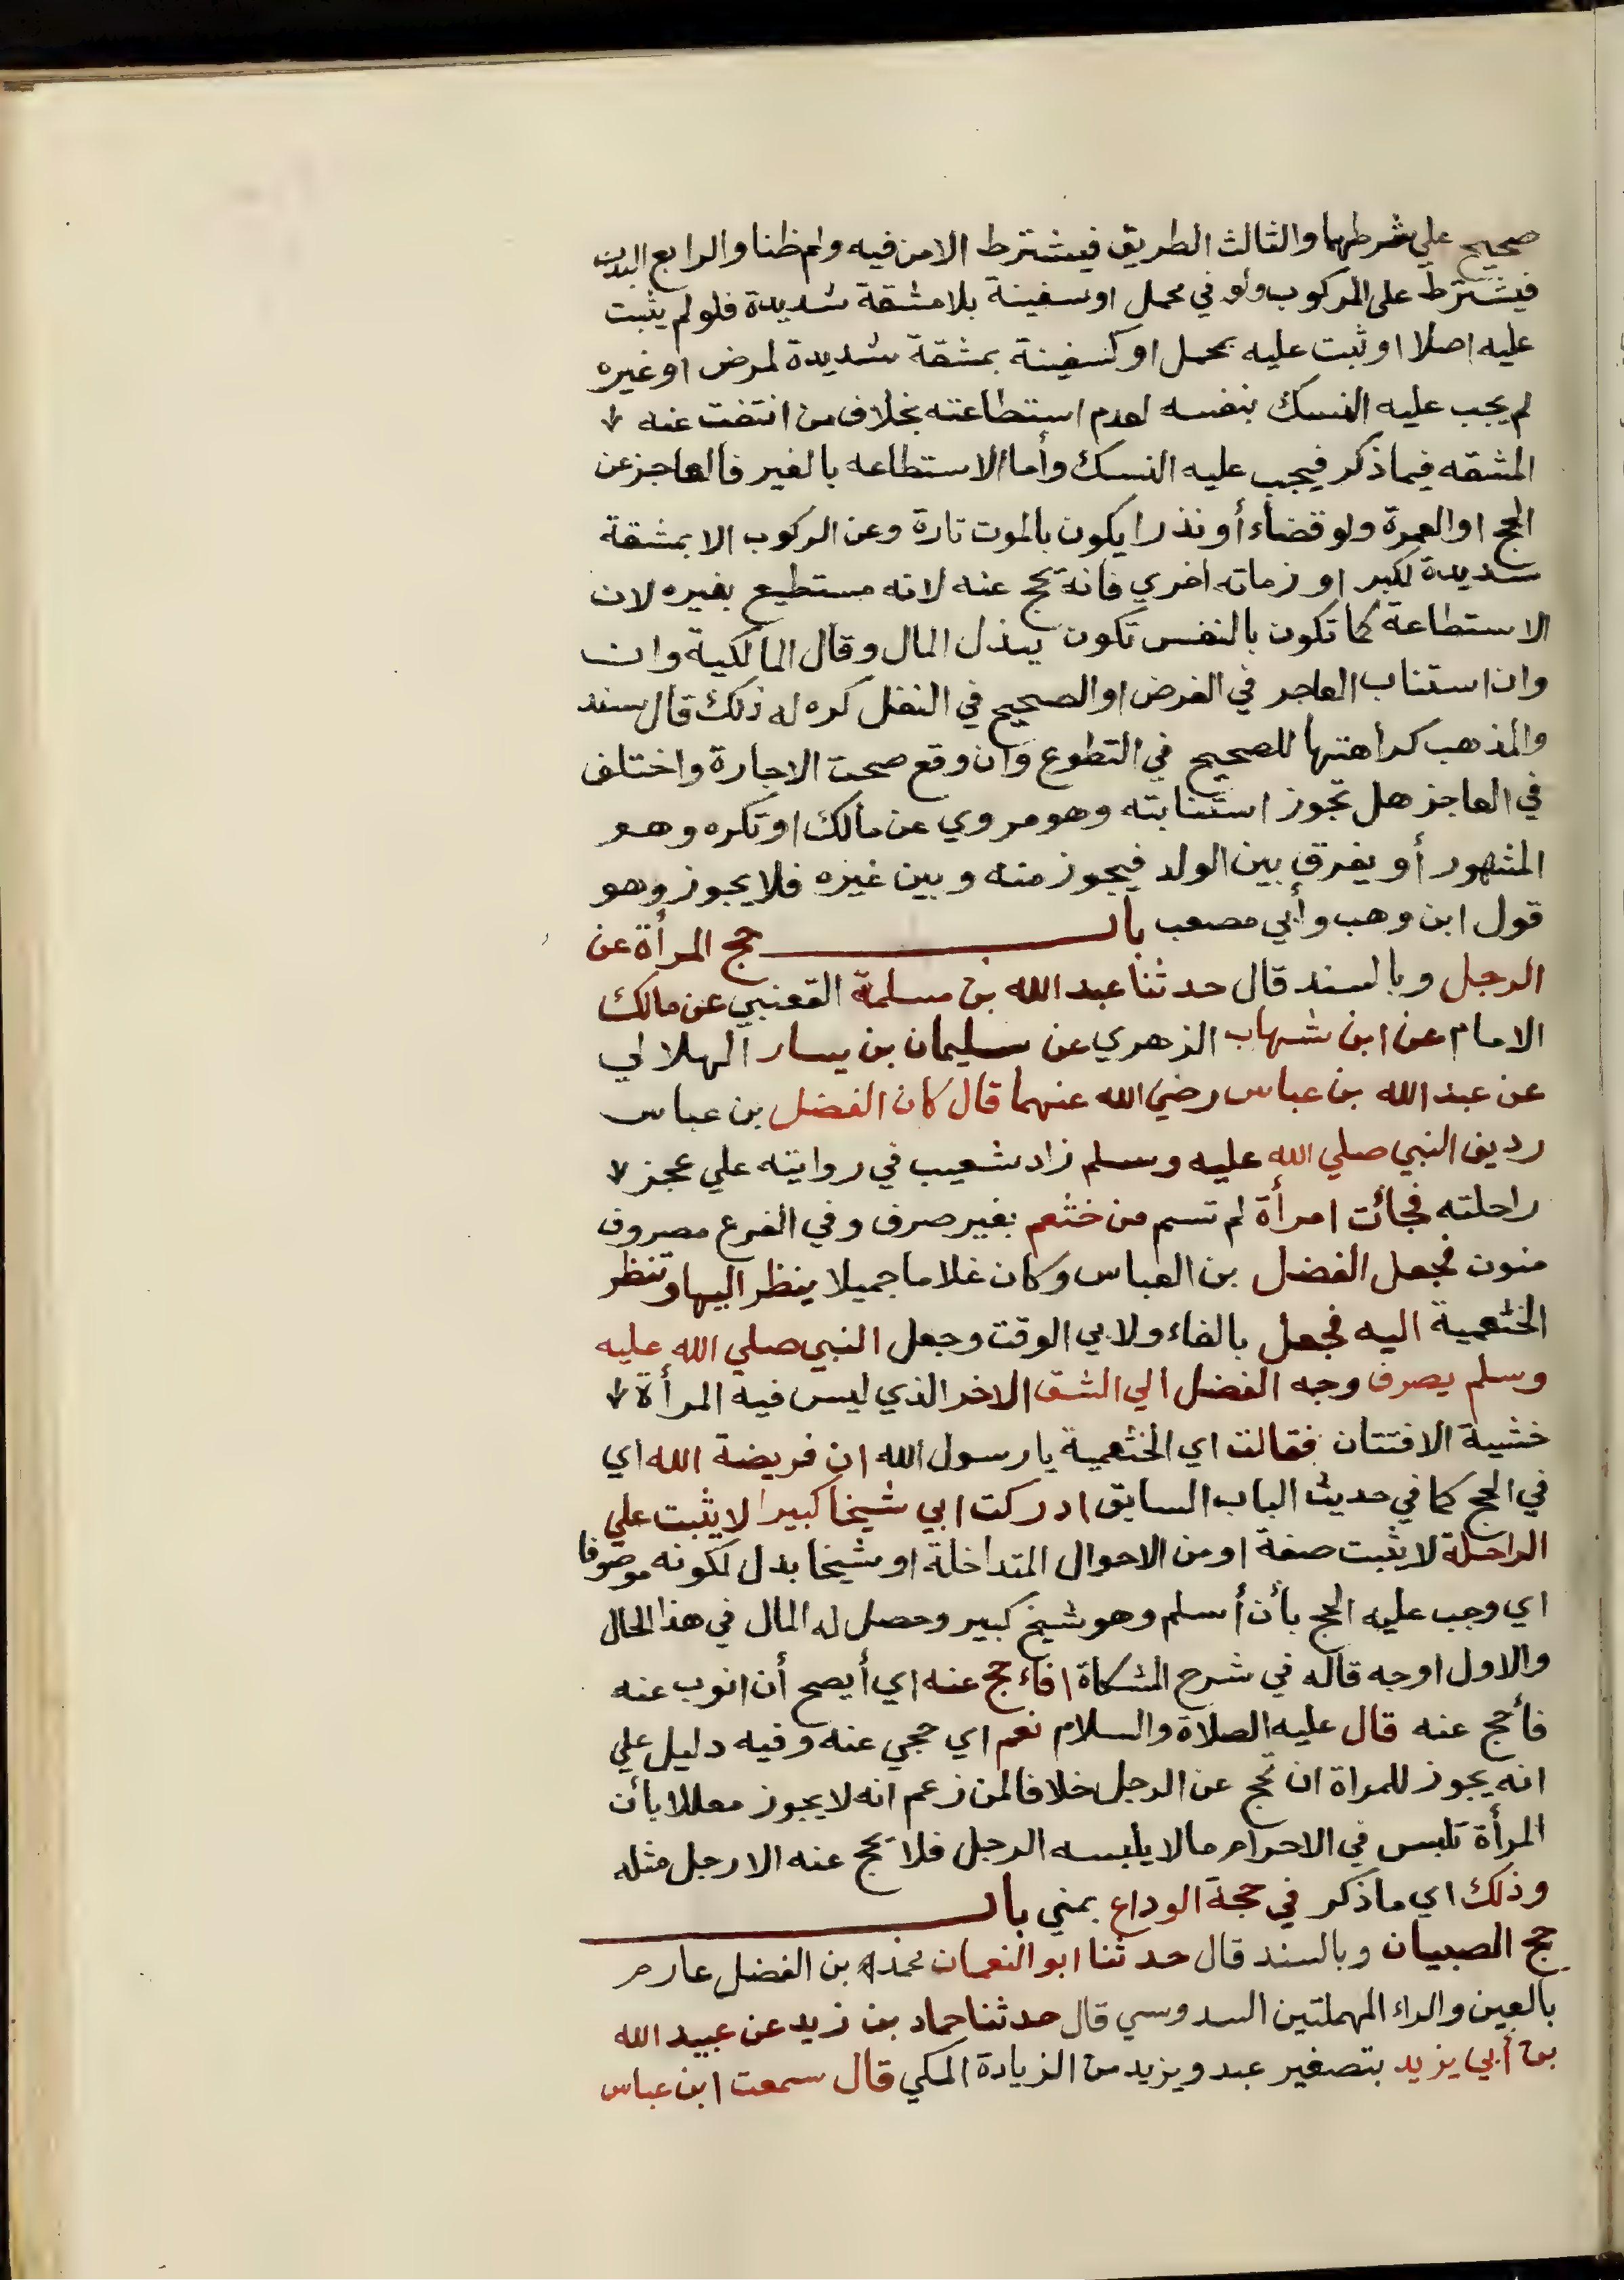 صحيح علي شرطهما والثالث الطريق فيشترط الامن فيه ولو ظنا والرابع البدن
فيشترط على المركوب ولو في محمل او سفينة بلا مشقة شديدة فلو لم يثبت
عليه اصلا او ثبت عليه بمحمل او كسفينة بمشقة شديدة لمرض او غيره
لم يجب عليه النسك بنفسه لعدم استطاعته بخلاف من انتفت عنه
المشقه فيما ذكر فيجب عليه النسك وأما الاستطاعه بالغير فالعاجز عن
الحج او العمرة ولو قضاء أو نذرا يكون بالموت تارة وعن الركوب الا بمشقة
شديدة لكبر او زمانه اخري فانه تحج عنه لانه مستطيع بغيره لان
الاستطاعة كما تكون بالنفس تكون ببذل المال وقال المالكية وان
وان استناب العاجر في الفرض او الصحيح في النفل كره له ذلك قال سند
والمذهب كراهتها للصحيح في التطوع وان وقع صحت الاجارة واختلف
في العاجز هل تجوز استنابته وهو مروي عن مالك او تكره وهو
المشهور أو يفرق بين الولد فيجوز منه وبين غيره فلا يجوز وهو
قول ابن وهب وأبي مصعب باب حج المرأة عن
الرجل وبالسند قال حدثنا عبد الله بن مسلمة القعنبي عن مالك
الامام عن ابن شهاب الزهري عن سليمان بن يسار الهلالي
عن عبد الله بن عباس رضي الله عنهما قال كان الفضل بن عباس
رديف النبي صلي الله عليه وسلم زاد شعيب في روايته علي عجز
راحلته فجائت امرأة لم تسم من خثعم بغير صرف وفي الفرع مصروف
منون فجعل الفضل بن العباس وكان غلاما جميلا ينظر اليها وتنظر
الخثعمية اليه فجعل بالفاء ولابي الوقت وجعل النبي صلي الله عليه
وسلم يصرف وجه الفضل الي الشق الاخر الذي ليس فيه المرأة
خشية الافتتان فقالت اي الخثعمية يا رسول الله ان فريضة الله اي
في الحج كما في حديث الباب السابق ادركت ابي شيخا كبيرا لا يثبت علي
الراحلة لا يثبت صفة او من الاحوال المتداخلة او شيخا بدل لكونه موصوفا
اي وجب عليه الحج بأن أسلم وهو شيخ كبير وحصل له المال في هذا الحال
والاول اوجه قاله في شرح المشكاة افاءحج عنه اي أيصح أن انوب عنه
فأحج عنه قال عليه الصلاة والسلام نعم اي حجي عنه وفيه دليل علي
انه يجوز للمراة ان تحج عن الرجل خلافا لمن زعم انه لا يجوز معللا بأن
المرأة تلبس في الاحرام مالا يلبسه الرجل فلا تحج عنه الا رجل مثله
وذلك اي ما ذكر في حجة الوداع بمني باب
حج الصبيان وبالسند قال حدثنا ابو النعمان محمد بن الفضل عارم
بالعين والراء المهملتين السدوسي قال حدثنا حماد بن زيد عن عبيد الله
بن أبي يزيد بتصغير عبد ويزيد من الزيادة المكي قال سمعت ابن عباس